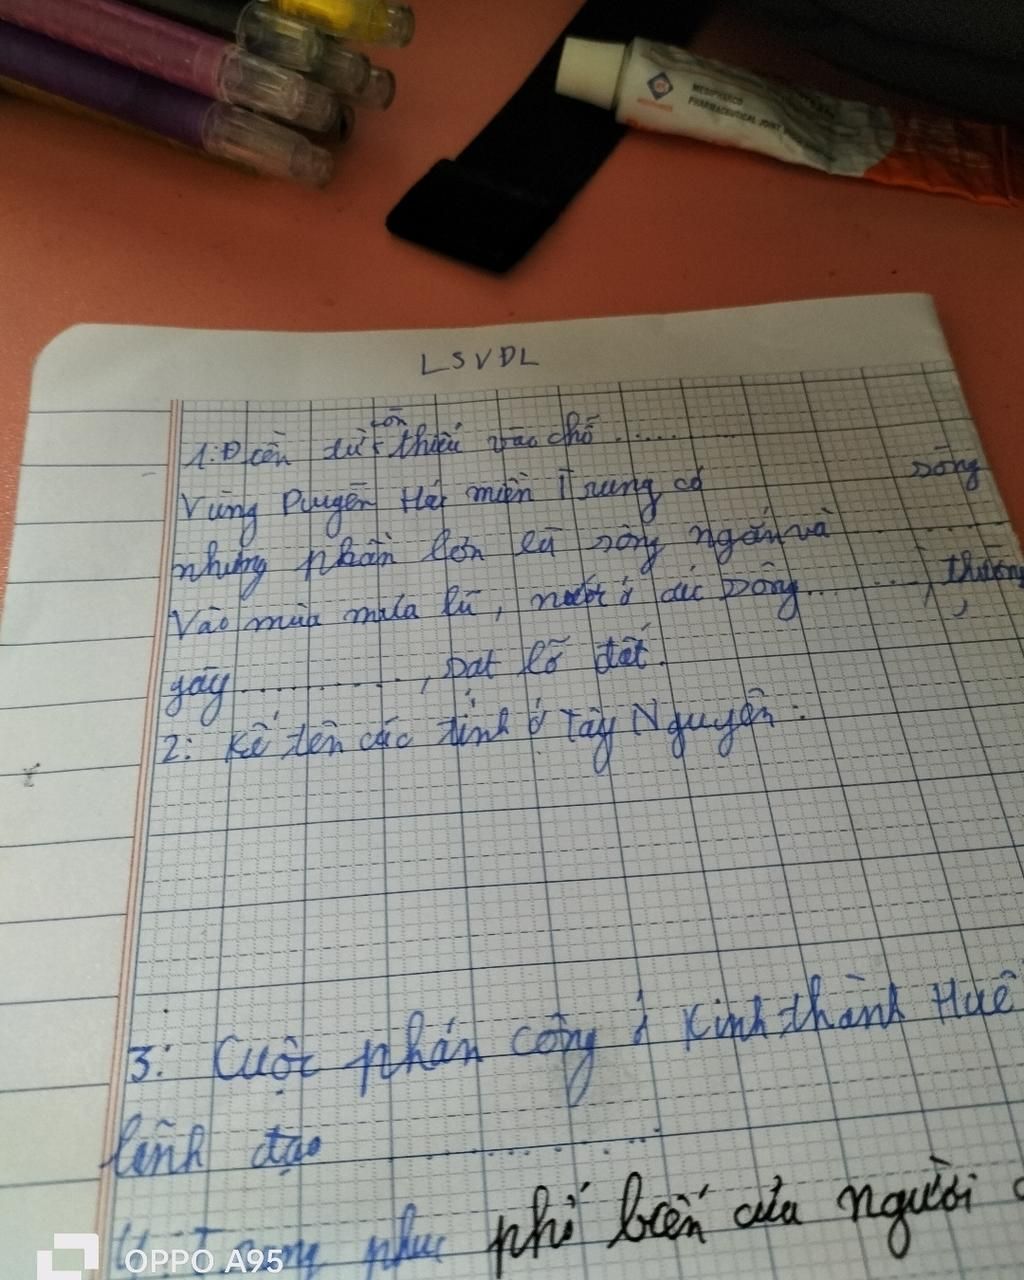 MEDIPHARCO
PHARMACEUTICAL JOINT
LSVDL
1: Điền từ còn thiếu vào chỗ ........
Vùng Duyên Hải miền Trung có sông
nhưng phần lớn là sông ngắn và ......
Vào mùa mưa lũ, nước ở các sông ........, thường
gây ............, sạt lở đất.
2: Kể tên các tỉnh ở Tây Nguyên:
3: Cuộc phản công ở Kinh thành Huế
lãnh đạo ............
Trang phục phổ biến của người
OPPO A95